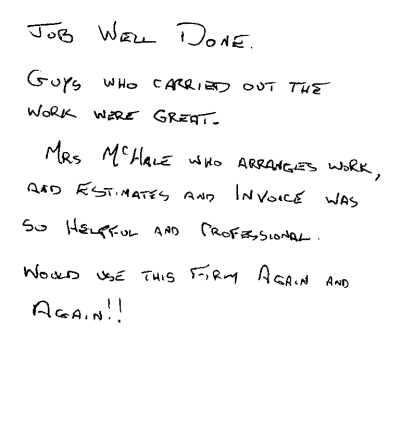 JOB WELL DONE.
GUYS WHO CARRIED OUT THE
WORK WERE GREAT.
MRS McHALE WHO ARRANGES WORK,
AND ESTIMATES AND INVOICE WAS
SO HELPFUL AND PROFESSIONAL.
WOULD USE THIS FIRM AGAIN AND
AGAIN!!